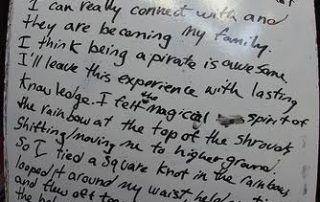 I can really connect with and
they are becoming my family.
I think being a pirate is awesome
I'll leave this experience with lasting
Knowledge. I felt the magical spirit of
the rainbow at the top of the shrouds
shifting/moving me to higher ground.
So I tied a square knot in the rainbows
looped it around my waist, held on
and flew off